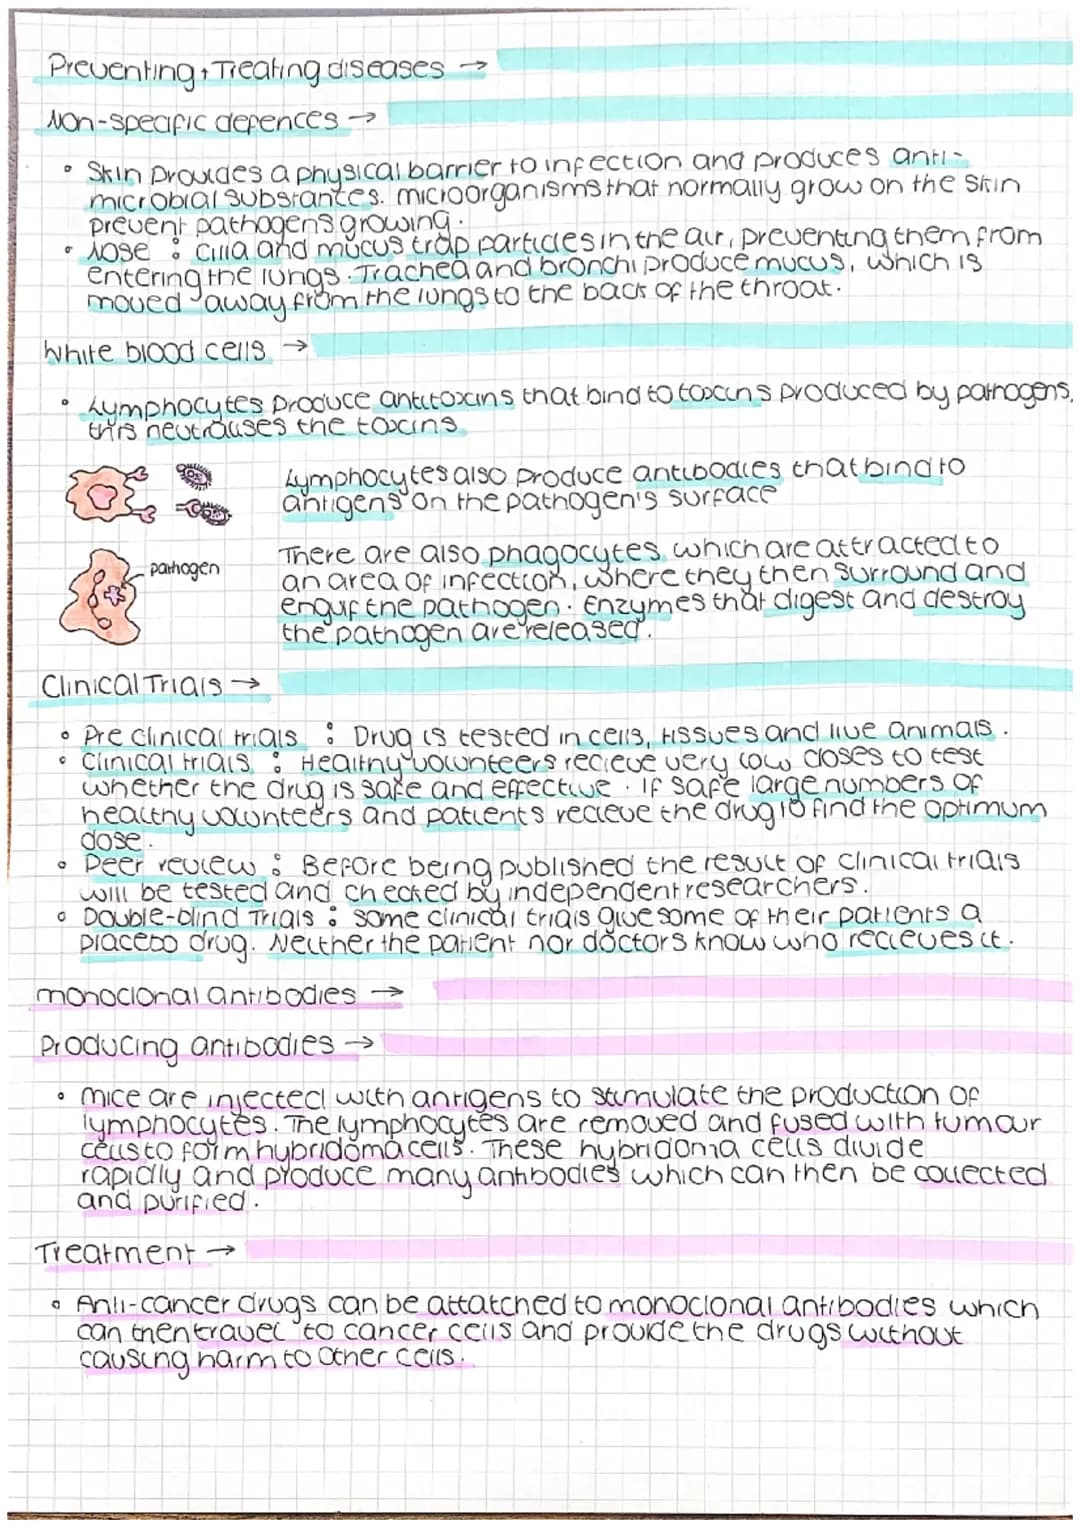 Preventing + Treating diseases →
Non-specific defences →
• Skin provides a physical barrier to infection and produces anti-
microbial substances. microorganisms that normally grow on the skin
prevent pathogens growing.
• Nose : cilia and mucus trap particles in the air, preventing them from
entering the lungs. Trachea and bronchi produce mucus, which is
moved away from the lungs to the back of the throat.
White blood cells →
• Lymphocytes produce antitoxins that bind to toxins produced by pathogens,
this neutralises the toxins
Lymphocytes also produce antibodies that bind to
antigens on the pathogen's surface
pathogen
There are also phagocytes which are attracted to
an area of infection, where they then surround and
enguf the pathogen. Enzymes that digest and destroy
the pathogen are released.
Clinical Trials →
• Pre clinical trials : Drug is tested in cells, tissues and live animals.
• Clinical trials : Healthy volunteers recieve very low doses to test
whether the drug is safe and effective. If safe large numbers of
healthy volunteers and patients recieve the drug to find the optimum
dose.
• Peer review : Before being published the result of clinical trials
will be tested and checked by independent researchers.
• Double-blind Trials : some clinical trials give some of their patients a
placebo drug. Neither the patient nor doctors know who recieves it.
monoclonal antibodies →
Producing antibodies →
• mice are injected with antigens to stimulate the production of
lymphocytes. The lymphocytes are removed and fused with tumour
cells to form hybridoma cells. These hybridoma cells divide
rapidly and produce many antibodies which can then be collected
and purified.
Treatment →
• Anti-cancer drugs can be attatched to monoclonal antibodies which
can then travel to cancer cells and provide the drugs without
causing harm to other cells.